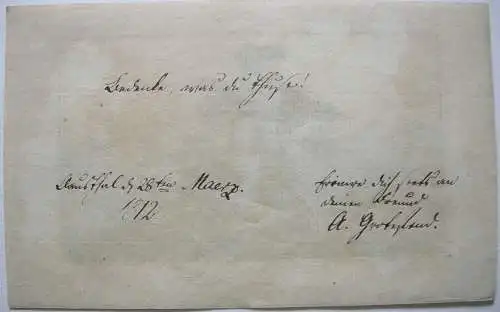 Bedenke, was du thuest!
Clausthal d 28ten Maerz.
1812
Erinnre dich stets an
deinen Freund
A. Grotefend.